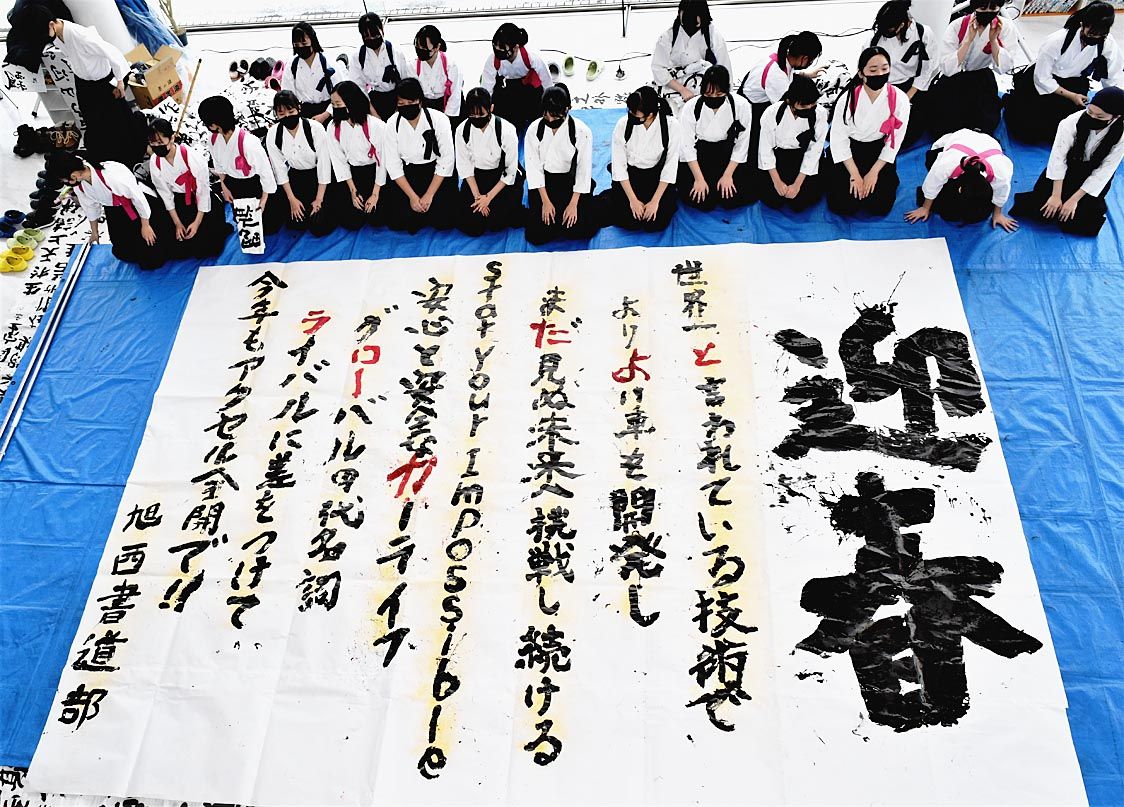 迎春
世界一と言われている技術で
よりよい車を開発し
まだ見ぬ未来へ挑戦し続ける
Star your Impossible
安心と安全なカーライフ
グローバルの代名詞
ライバルに差をつけて
今年もアクセル全開で!!
旭西書道部